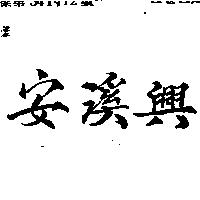 安溪興